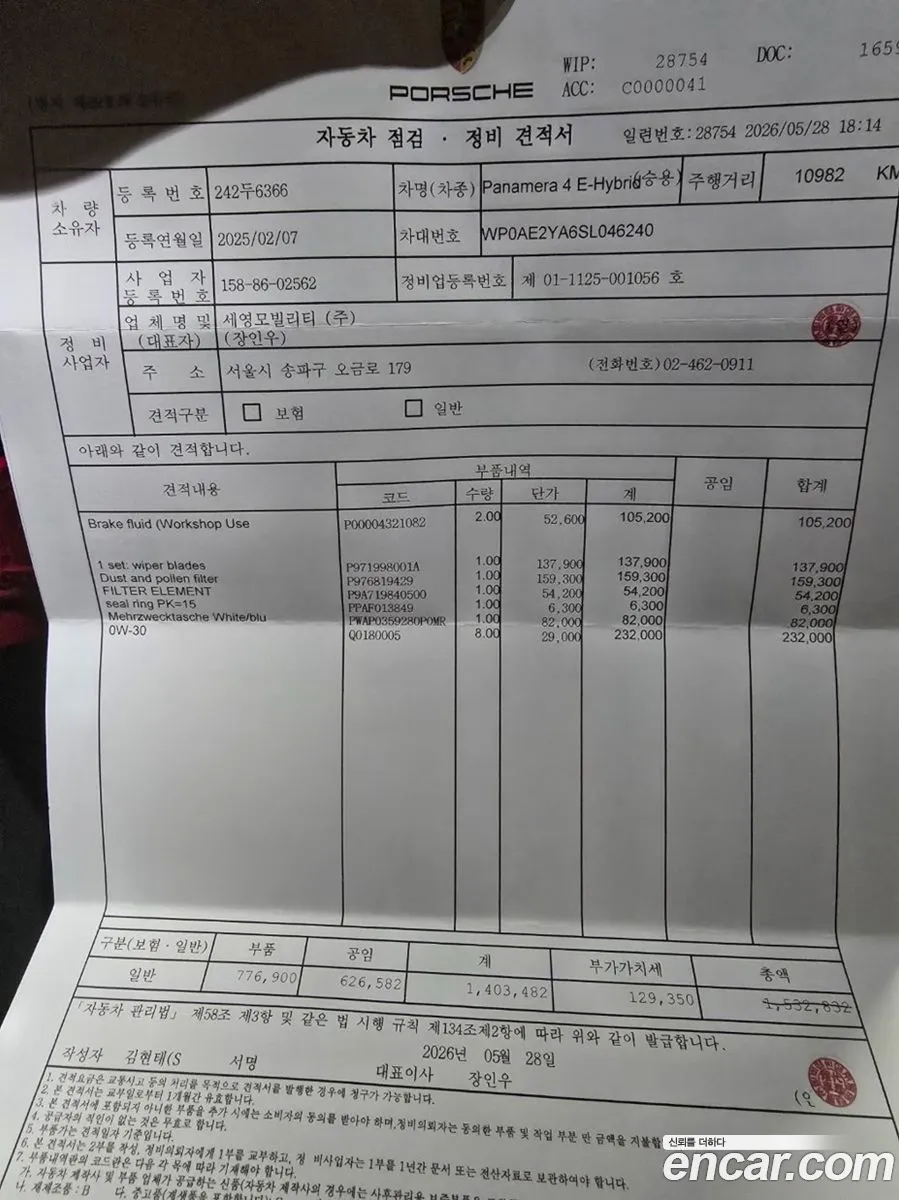 WIP: 28754 DOC: 1659
PORSCHE ACC: C0000041
자동차 점검 · 정비 견적서 일련번호:28754 2026/05/28 18:14
차 량 소유자
등 록 번 호 242두6366 차명(차종) Panamera 4 E-Hybrid(승용) 주행거리 10982 KM
등록연월일 2025/02/07 차대번호 WP0AE2YA6SL046240
정 비 사업자
사 업 자 등 록 번 호 158-86-02562 정비업등록번호 제 01-1125-001056 호
업 체 명 및 세영모빌리티 (주)
(대표자) (장인우)
주 소 서울시 송파구 오금로 179 (전화번호)02-462-0911
견적구분 보험 일반
아래와 같이 견적합니다.
견적내용 부품내역 공임 합계
코드 수량 단가 계
Brake fluid (Workshop Use P00004321082 2.00 52,600 105,200 105,200
1 set: wiper blades P971998001A 1.00 137,900 137,900 137,900
Dust and pollen filter P976819429 1.00 159,300 159,300 159,300
FILTER ELEMENT P9A719840500 1.00 54,200 54,200 54,200
seal ring PK=15 PPAF013849 1.00 6,300 6,300 6,300
Mehrzwecktasche White/blu PWAP0359280P0MR 1.00 82,000 82,000 82,000
0W-30 Q0180005 8.00 29,000 232,000 232,000
구분(보험 · 일반) 부품 공임 계 부가가치세 총액
일반 776,900 626,582 1,403,482 129,350 1,532,832
「자동차 관리법」 제58조 제3항 및 같은 법 시행 규칙 제134조제2항에 따라 위와 같이 발급합니다.
2026년 05월 28일
작성자 김현태(S 서명 대표이사 장인우 (인
1. 견적요금은 교통사고 등의 처리를 목적으로 견적서를 발행한 경우에 청구가 가능합니다.
2. 본 견적서는 교부일로부터 1개월간 유효합니다.
3. 본 견적서에 포함되지 아니한 부품을 추가 시에는 소비자의 동의를 받아야 하며,정비의뢰자는 동의한 부품 및 작업 부분 만 금액을 지불합
4. 공급자의 직인이 없는 것은 무효로 합니다.
5. 부품가는 견적일자 기준입니다.
6. 본 견적서는 2부를 작성, 정비의뢰자에게 1부를 교부하고, 정 비사업자는 1부를 1년간 문서 또는 전산자료로 보관하여야 합니다.
7. 부품내역란의 코드란은 다음 각 목에 따라 기재해야 합니다.
가. 자동차 제작사 및 부품 업체가 공급하는 신품(자동차 제작사의 경우에는 사후관리용
나. 재제조품 : B 다. 중고품(재생품을 포함합니다)
신뢰를 더하다
encar.com